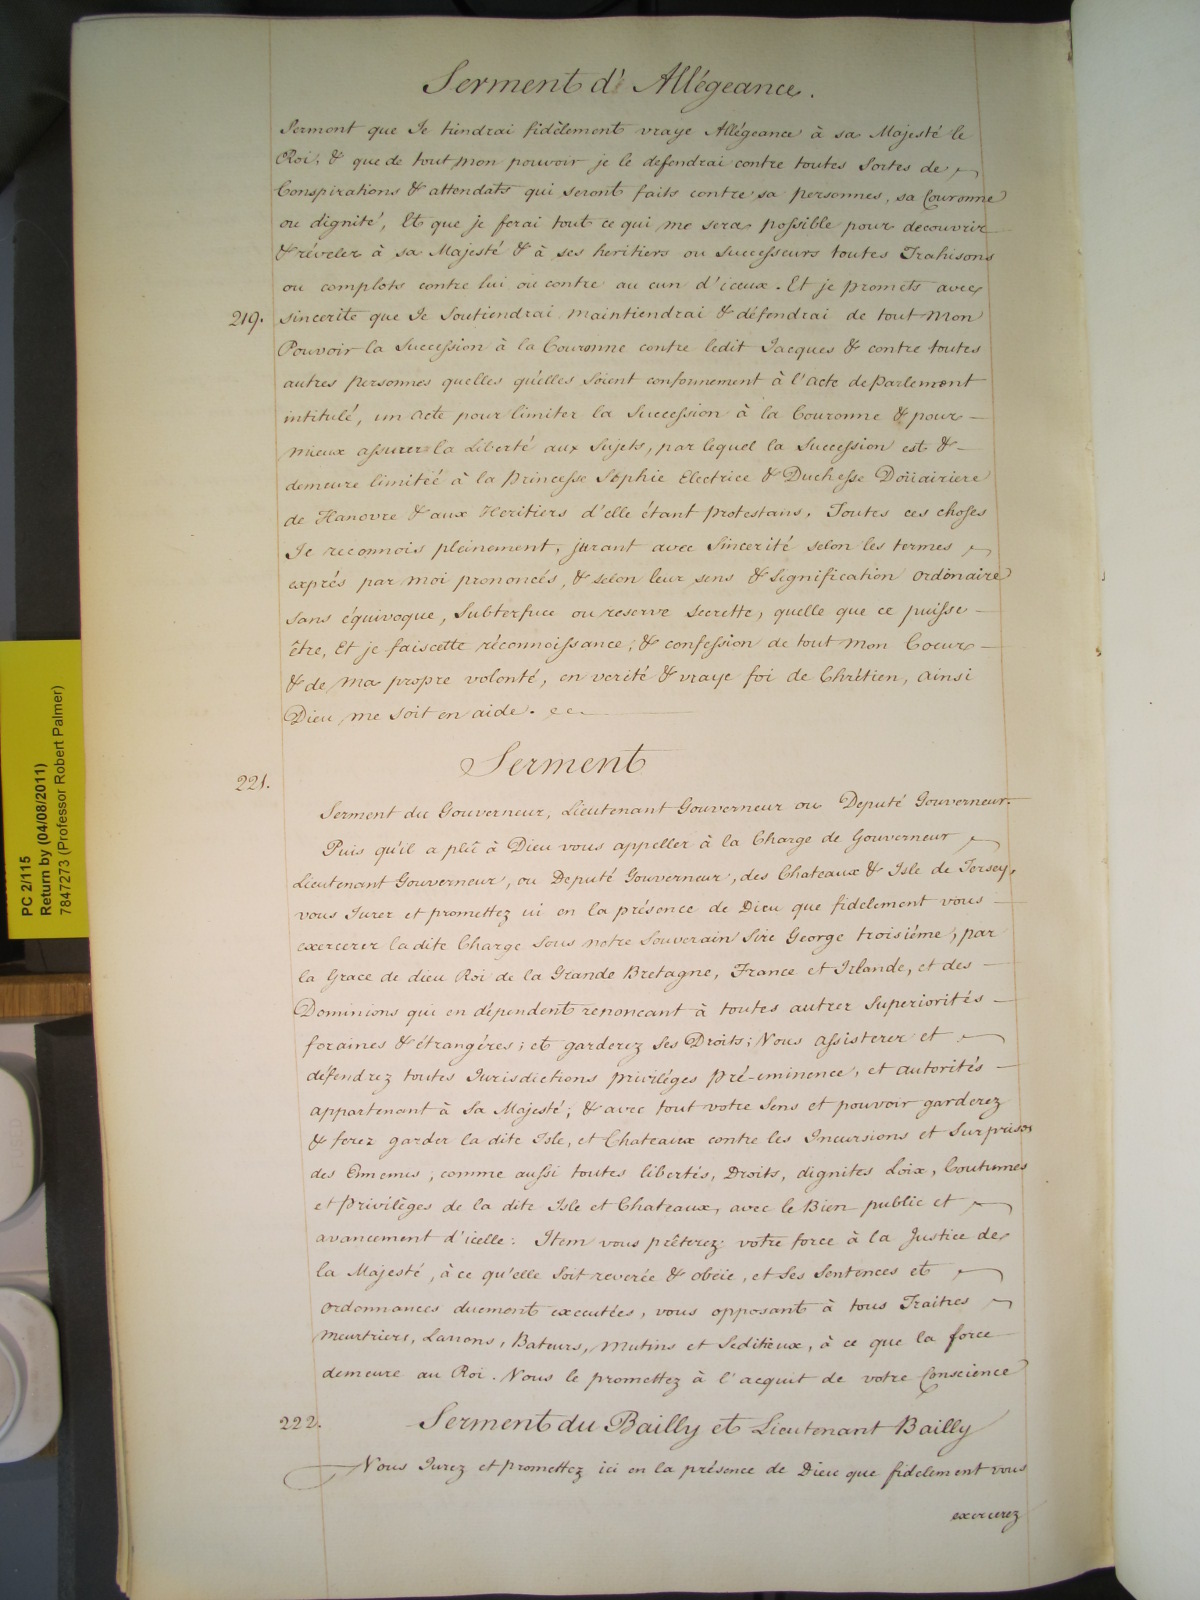 Serment d'Allégeance.
Serment que Je tiendrai fidèlement vraye Allégeance à sa Majesté le
Roi, & que de tout mon pouvoir je le defendrai contre toutes Sortes de
Conspirations & attendats qui seront faits contre sa personnes, sa Couronne
ou dignité, Et que je ferai tout ce qui me sera possible pour decouvrir
& réveler à sa Majesté & à ses heritiers ou successeurs toutes Trahisons
ou complots contre lui ou contre au cun d'iceux. Et je promets avec
219. sincerite que Je Soutiendrai maintiendrai & défendrai de tout Mon
Pouvoir la Succession à la Couronne contre ledit Jacques & contre toutes
autres personnes quelles qu'elles soient conformement à l'acte de Parlement
intitulé, un acte pour limiter la Succession à la Couronne & pour
mieux assurer la Liberté aux Sujets, par lequel la Succession est &
demeure limitéé à la Princesse Sophie Electrice & Duchesse Doüairiere
de Hanovre & aux Heritiers d'elle étant protestans. Toutes ces choses
Je reconnois pleinement, jurant avec Sincerité selon les termes
exprés par moi prononcés, & selon leur sens & signification ordinaire
sans équivoque, Subterfuce ou reserve secrette, quelle que ce puisse
être, Et je fais cette réconnoissance, & confession de tout mon Coeur
& de ma propre volonté, en verité & vraye foi de Chrétien, ainsi
Dieu me soit en aide.
Serment
221.
Serment du Gouverneur, Lieutenant Gouverneur ou Deputé Gouverneur.
Puis qu'il a plû à Dieu vous appeller à la Charge de Gouverneur
Lieutenant Gouverneur, ou Deputé Gouverneur, des Chateaux & Isle de Jersey,
vous Jurer et promettez ici en la présence de Dieu que fidelement vous
exercerer la dite Charge sous notre Souverain Sire George troisiéme, par
la Grace de dieu Roi de la Grande Bretagne, France et Irlande, et des
Dominions qui en dépendent renoncant à toutes autrer Superiorités
foraines & étrangéres; et garderez ses Droits; Vous assisterer et
defendrez toutes Jurisdictions priviléges pré-eminence, et autorités
appartenant à Sa Majesté; & avec tout votre Sens et pouvoir garderez
& ferez garder la dite Isle, et Chateaux contre les Incursions et Surprises
des Ennemis, comme aussi toutes libertés, Droits, dignites Loix, Coutumes
et Privilèges de la dite Isle et Chateaux, avec le Bien public et
avancement d'icelle: Item vous prêterez votre force à la Justice de
la Majesté, à ce qu'elle soit reverée & obeie, et ses Sentences et
ordonnances duement executées, vous opposant à tous Traitres
meurtriers, Larrons, Bateurs, Mutins et Seditieux, à ce que la force
demeure au Roi. Vous le promettez à l'acquit de votre Conscience
222. Serment du Bailly et Lieutenant Bailly
Vous Jurez et promettez ici en la présence de Dieu que fidelement vous
exercerez
PC 2/115
Return by (04/08/2011)
7847273 (Professor Robert Palmer)